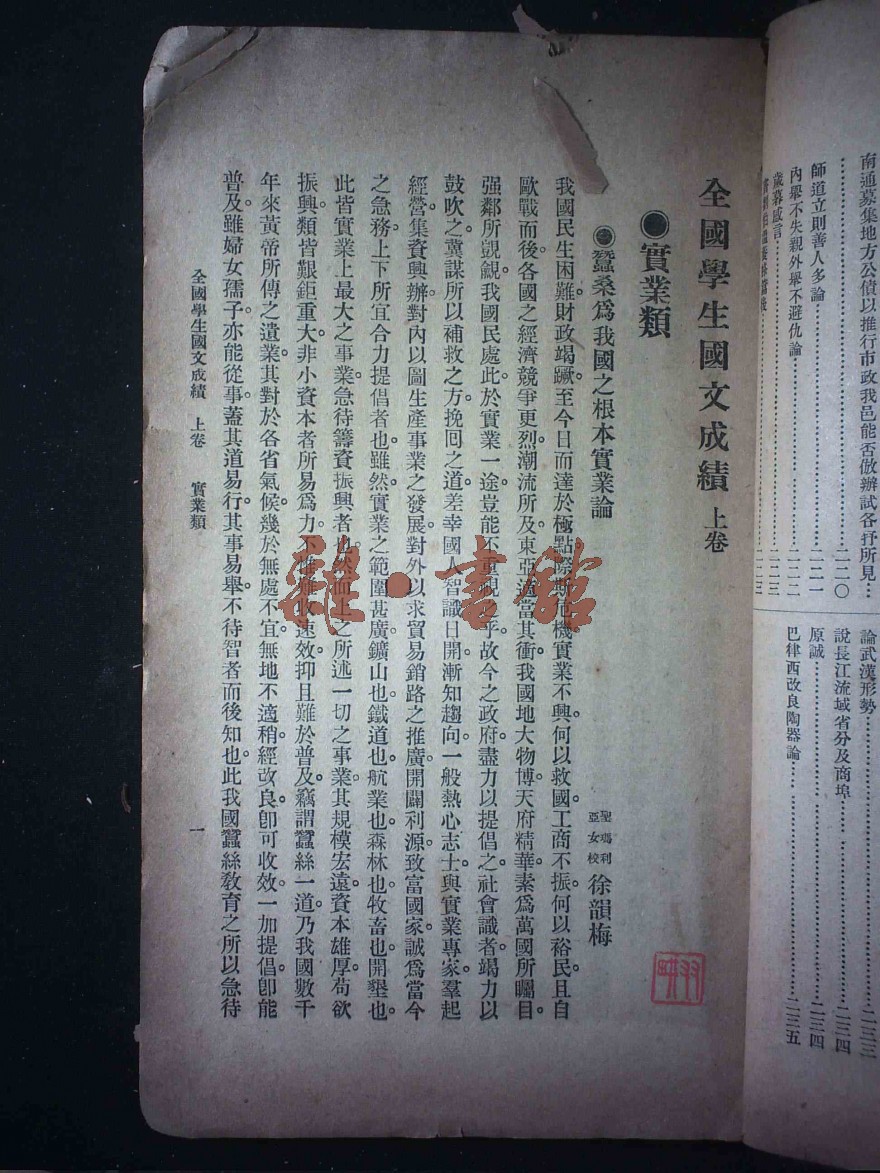 南通募集地方公債以推行市政我邑能否倣辦試各抒所見⋯二二〇
師道立則善人多論⋯⋯二二一
內舉不失親外舉不避仇論⋯⋯二二二
歲暮感言⋯⋯二二三
論武漢形勢⋯⋯二三三
說長江流域省分及商埠⋯⋯二三四
原誠⋯⋯二三四
巴律西改良陶器論⋯⋯二三五
全國學生國文成績 上卷
●實業類
●蠶桑爲我國之根本實業論
聖瑪利亞女校 徐韻梅
我國民生困難財政竭蹶至今日而達於極點際斯危機實業不興何以救國工商不振何以裕民且自
歐戰而後各國之經濟競爭更烈潮流所及東亞適當其衝我國地大物博天府精華素爲萬國所矚目
强鄰所覬覦我國民處此於實業一途豈能不重視乎故今之政府盡力以提倡之社會識者竭力以
鼓吹之冀謀所以補救之方挽回之道差幸國人智識日開漸知趨向一般熱心志士與實業專家羣起
經營集資興辦對內以圖生產事業之發展對外以求貿易銷路之推廣開闢利源致富國家誠爲當今
之急務上下所宜合力提倡者也雖然實業之範圍甚廣鑛山也鐵道也航業也森林也牧畜也開墾也
此皆實業上最大之事業急待籌資振興者也然而上之所述一切之事業其規模宏遠資本雄厚苟欲
振興類皆艱鉅重大非小資本者所易爲力不惟難收速效抑且難於普及竊謂蠶絲一道乃我國數千
年來黃帝所傳之遺業其對於各省氣候幾於無處不宜無地不適稍經改良卽可收效一加提倡卽能
普及雖婦女孺子亦能從事蓋其道易行其事易舉不待智者而後知也此我國蠶絲教育之所以急待
全國學生國文成績 上卷 實業類 一
雜·書館